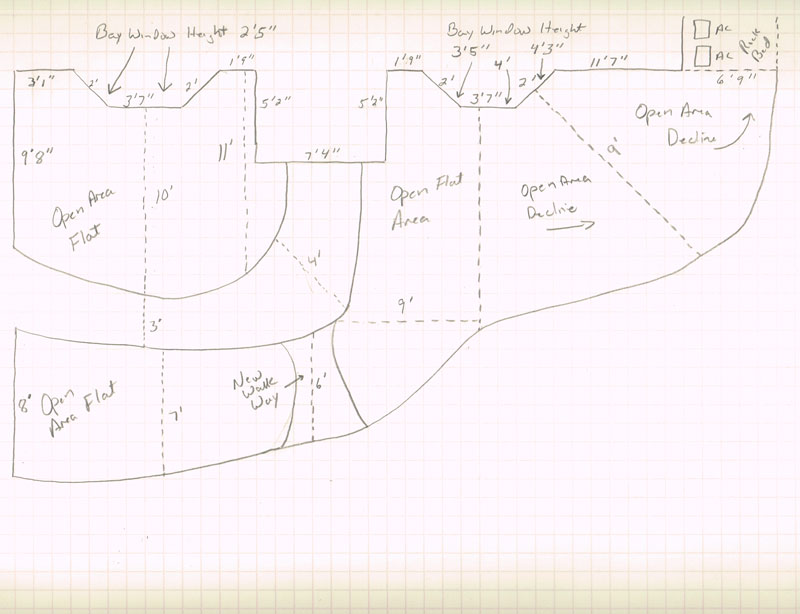 Bay Window Height 2'5"
Bay Window Height
3'5"
4'3"
4'
AC
AC
Rock
Bed
3'1"
2'
3'7"
2'
1'9"
1'9"
2'
3'7"
2'
11'7"
6'9"
5'2"
5'2"
7'4"
9'8"
11'
10'
Open Area
Flat
Open Flat
Area
Open Area
Decline
Open Area
Decline
9'
4'
9'
3'
8'
Open
Area Flat
7'
New
Walk
Way
6'